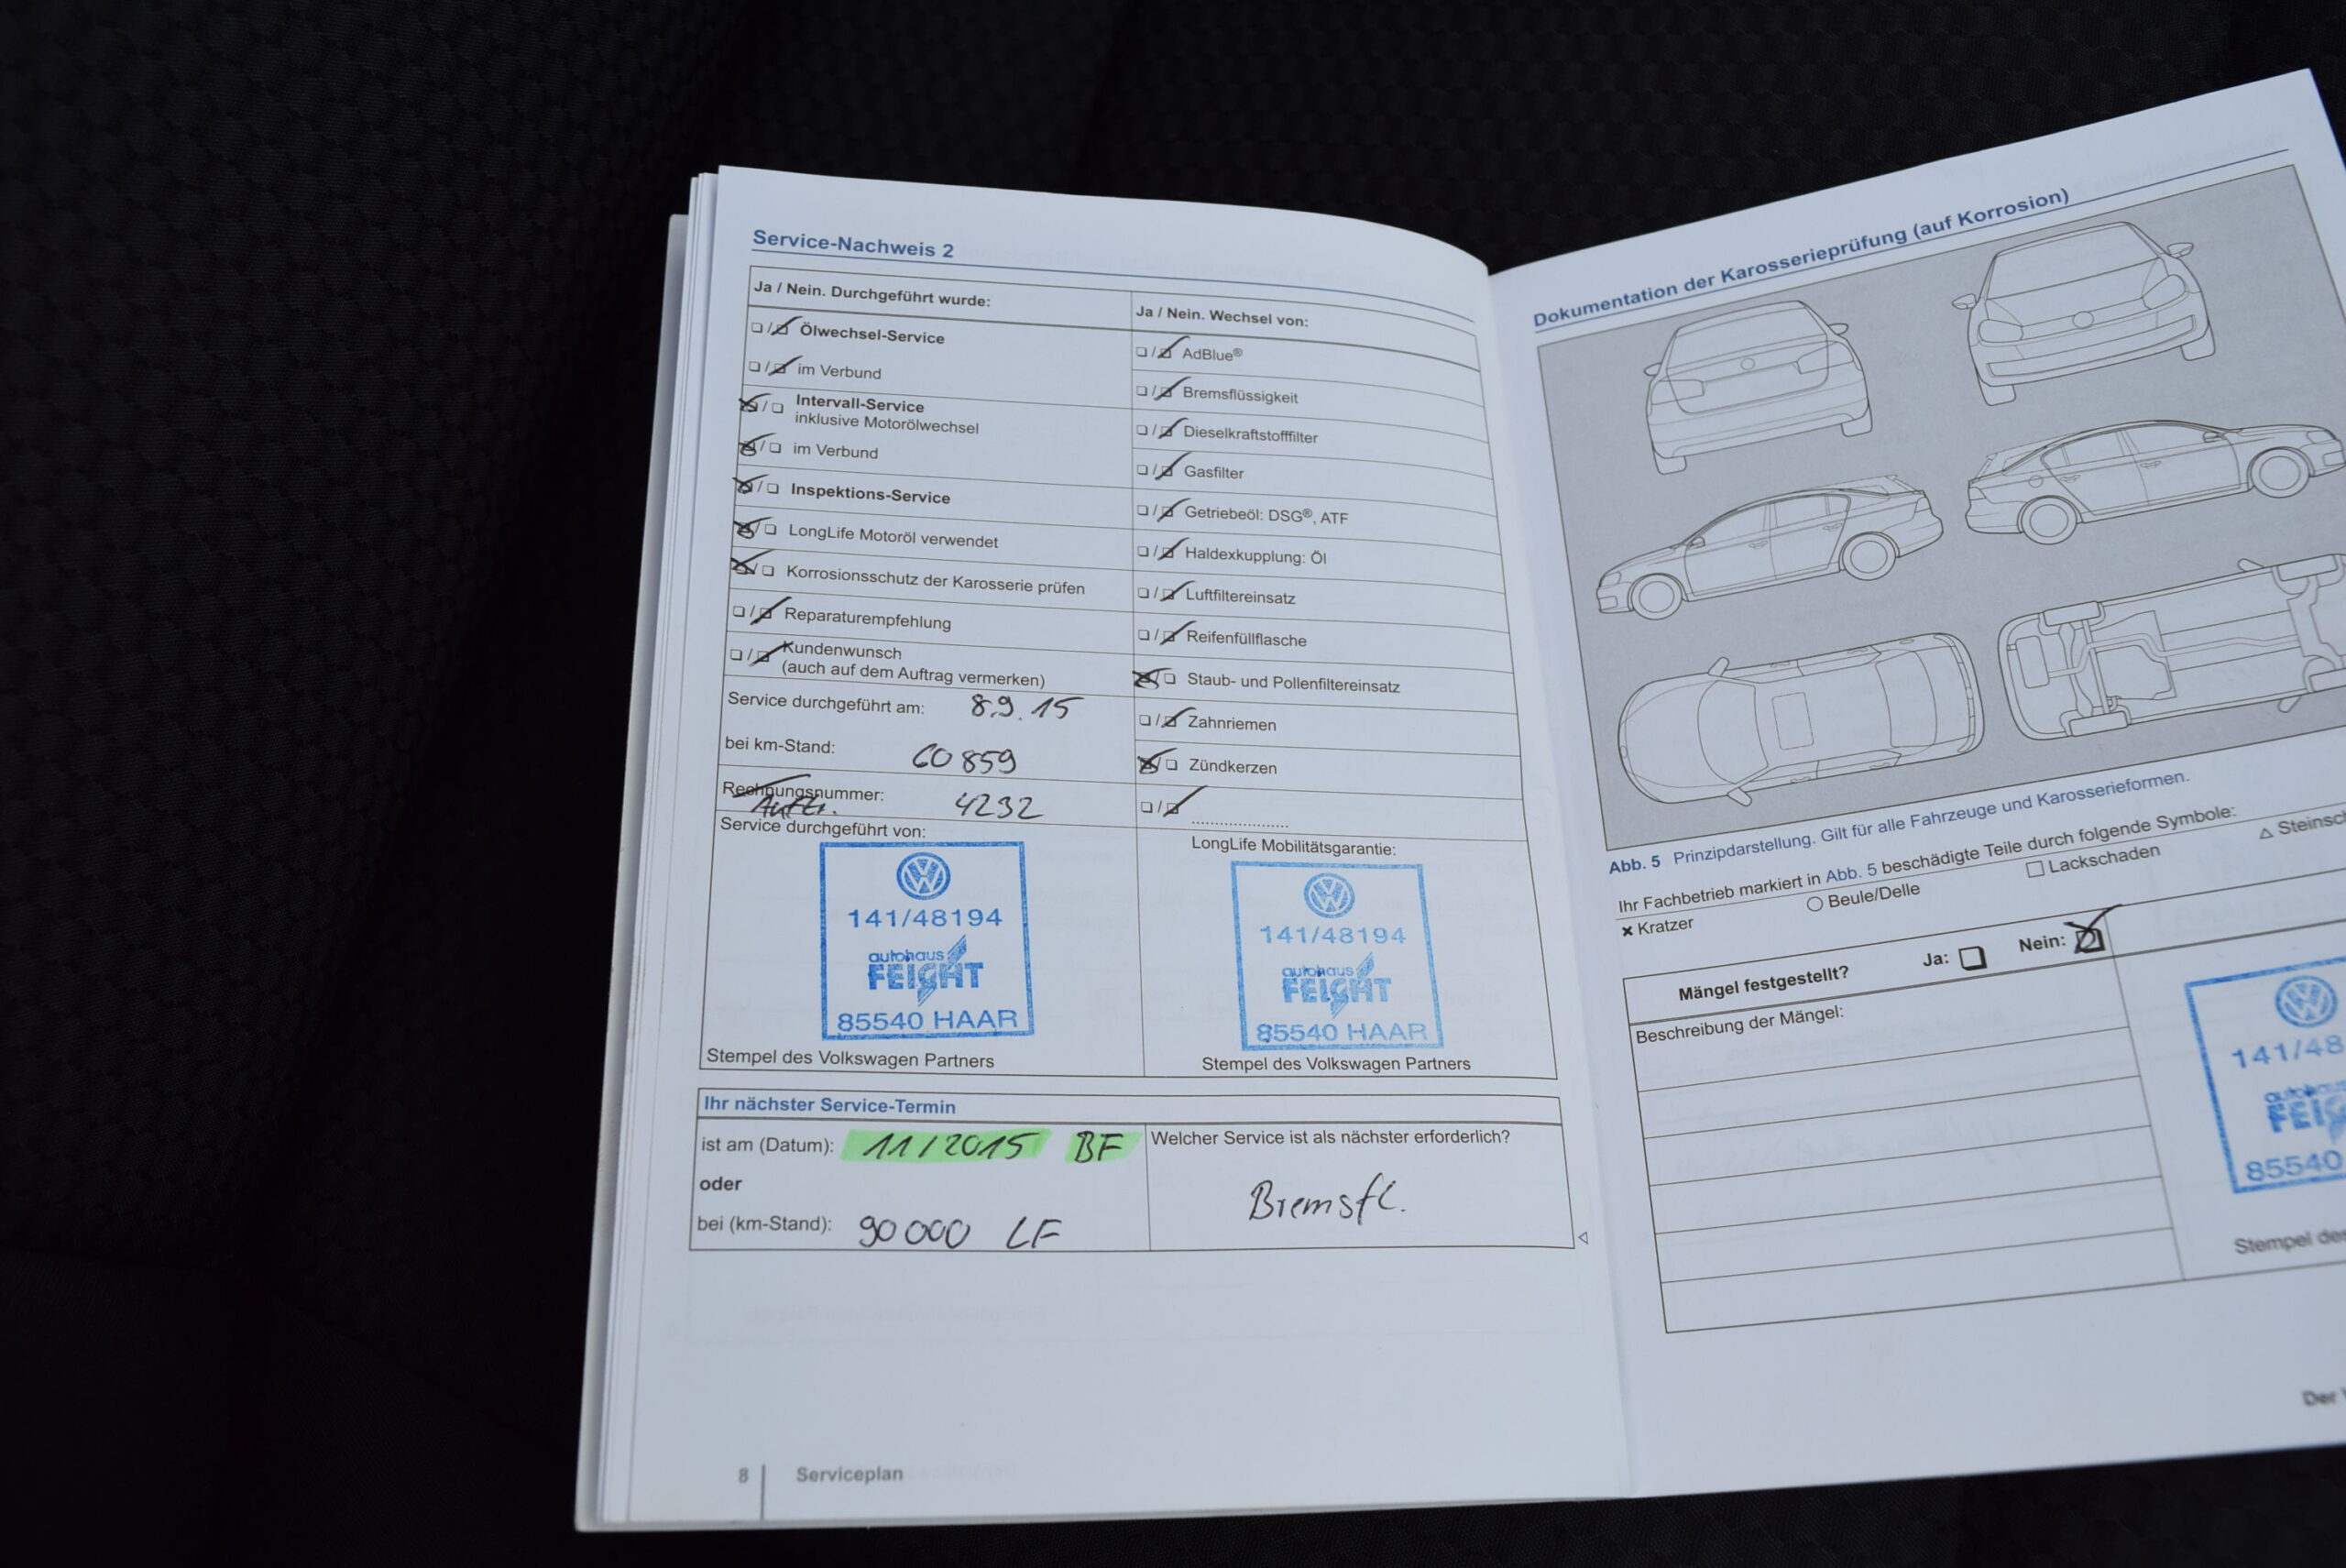 Service-Nachweis 2
Ja / Nein. Durchgeführt wurde:
Ölwechsel-Service
im Verbund
Intervall-Service
inklusive Motorölwechsel
im Verbund
Inspektions-Service
LongLife Motoröl verwendet
Korrosionsschutz der Karosserie prüfen
Reparaturempfehlung
Kundenwunsch
(auch auf dem Auftrag vermerken)
Service durchgeführt am: 8.9.15
bei km-Stand: 60859
Rechnungsnummer: 4232
Service durchgeführt von:
141/48194
autohaus
FEIGHT
85540 HAAR
Stempel des Volkswagen Partners
Ja / Nein. Wechsel von:
AdBlue®
Bremsflüssigkeit
Dieselkraftstofffilter
Gasfilter
Getriebeöl: DSG®, ATF
Haldexkupplung: Öl
Luftfiltereinsatz
Reifenfüllflasche
Staub- und Pollenfiltereinsatz
Zahnriemen
Zündkerzen
LongLife Mobilitätsgarantie:
141/48194
autohaus
FEIGHT
85540 HAAR
Stempel des Volkswagen Partners
Ihr nächster Service-Termin
ist am (Datum): 11/2015 BF
oder
bei (km-Stand): 90000 LF
Welcher Service ist als nächster erforderlich?
Bremsfl.
8 Serviceplan
Dokumentation der Karosserieprüfung (auf Korrosion)
Abb. 5 Prinzipdarstellung. Gilt für alle Fahrzeuge und Karosserieformen.
Ihr Fachbetrieb markiert in Abb. 5 beschädigte Teile durch folgende Symbole:
× Kratzer ○ Beule/Delle □ Lackschaden △ Steinsch
Mängel festgestellt? Ja: Nein:
Beschreibung der Mängel:
141/48
FEIG
85540
Stempel des
Der